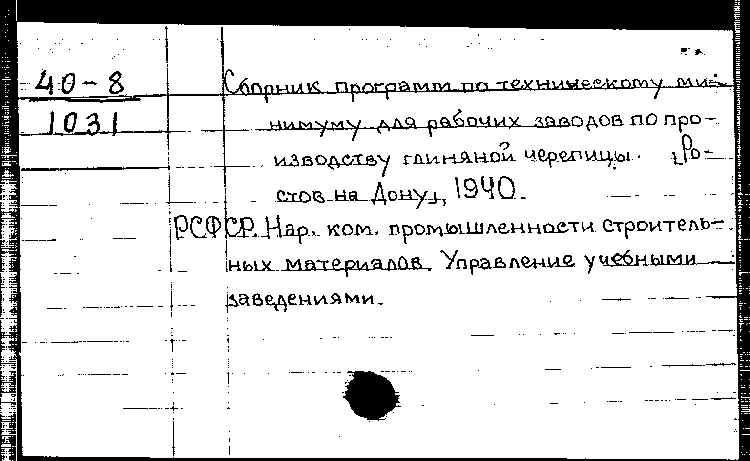 40-8
1031
Сборник программ по техническому ми-
нимуму для рабочих заводов по про-
изводству глиняной черепицы. [Ро-
стов на Дону], 1940.
РСФСР. Нар. ком. промышленности строитель-
ных материалов. Управление учебными
заведениями.